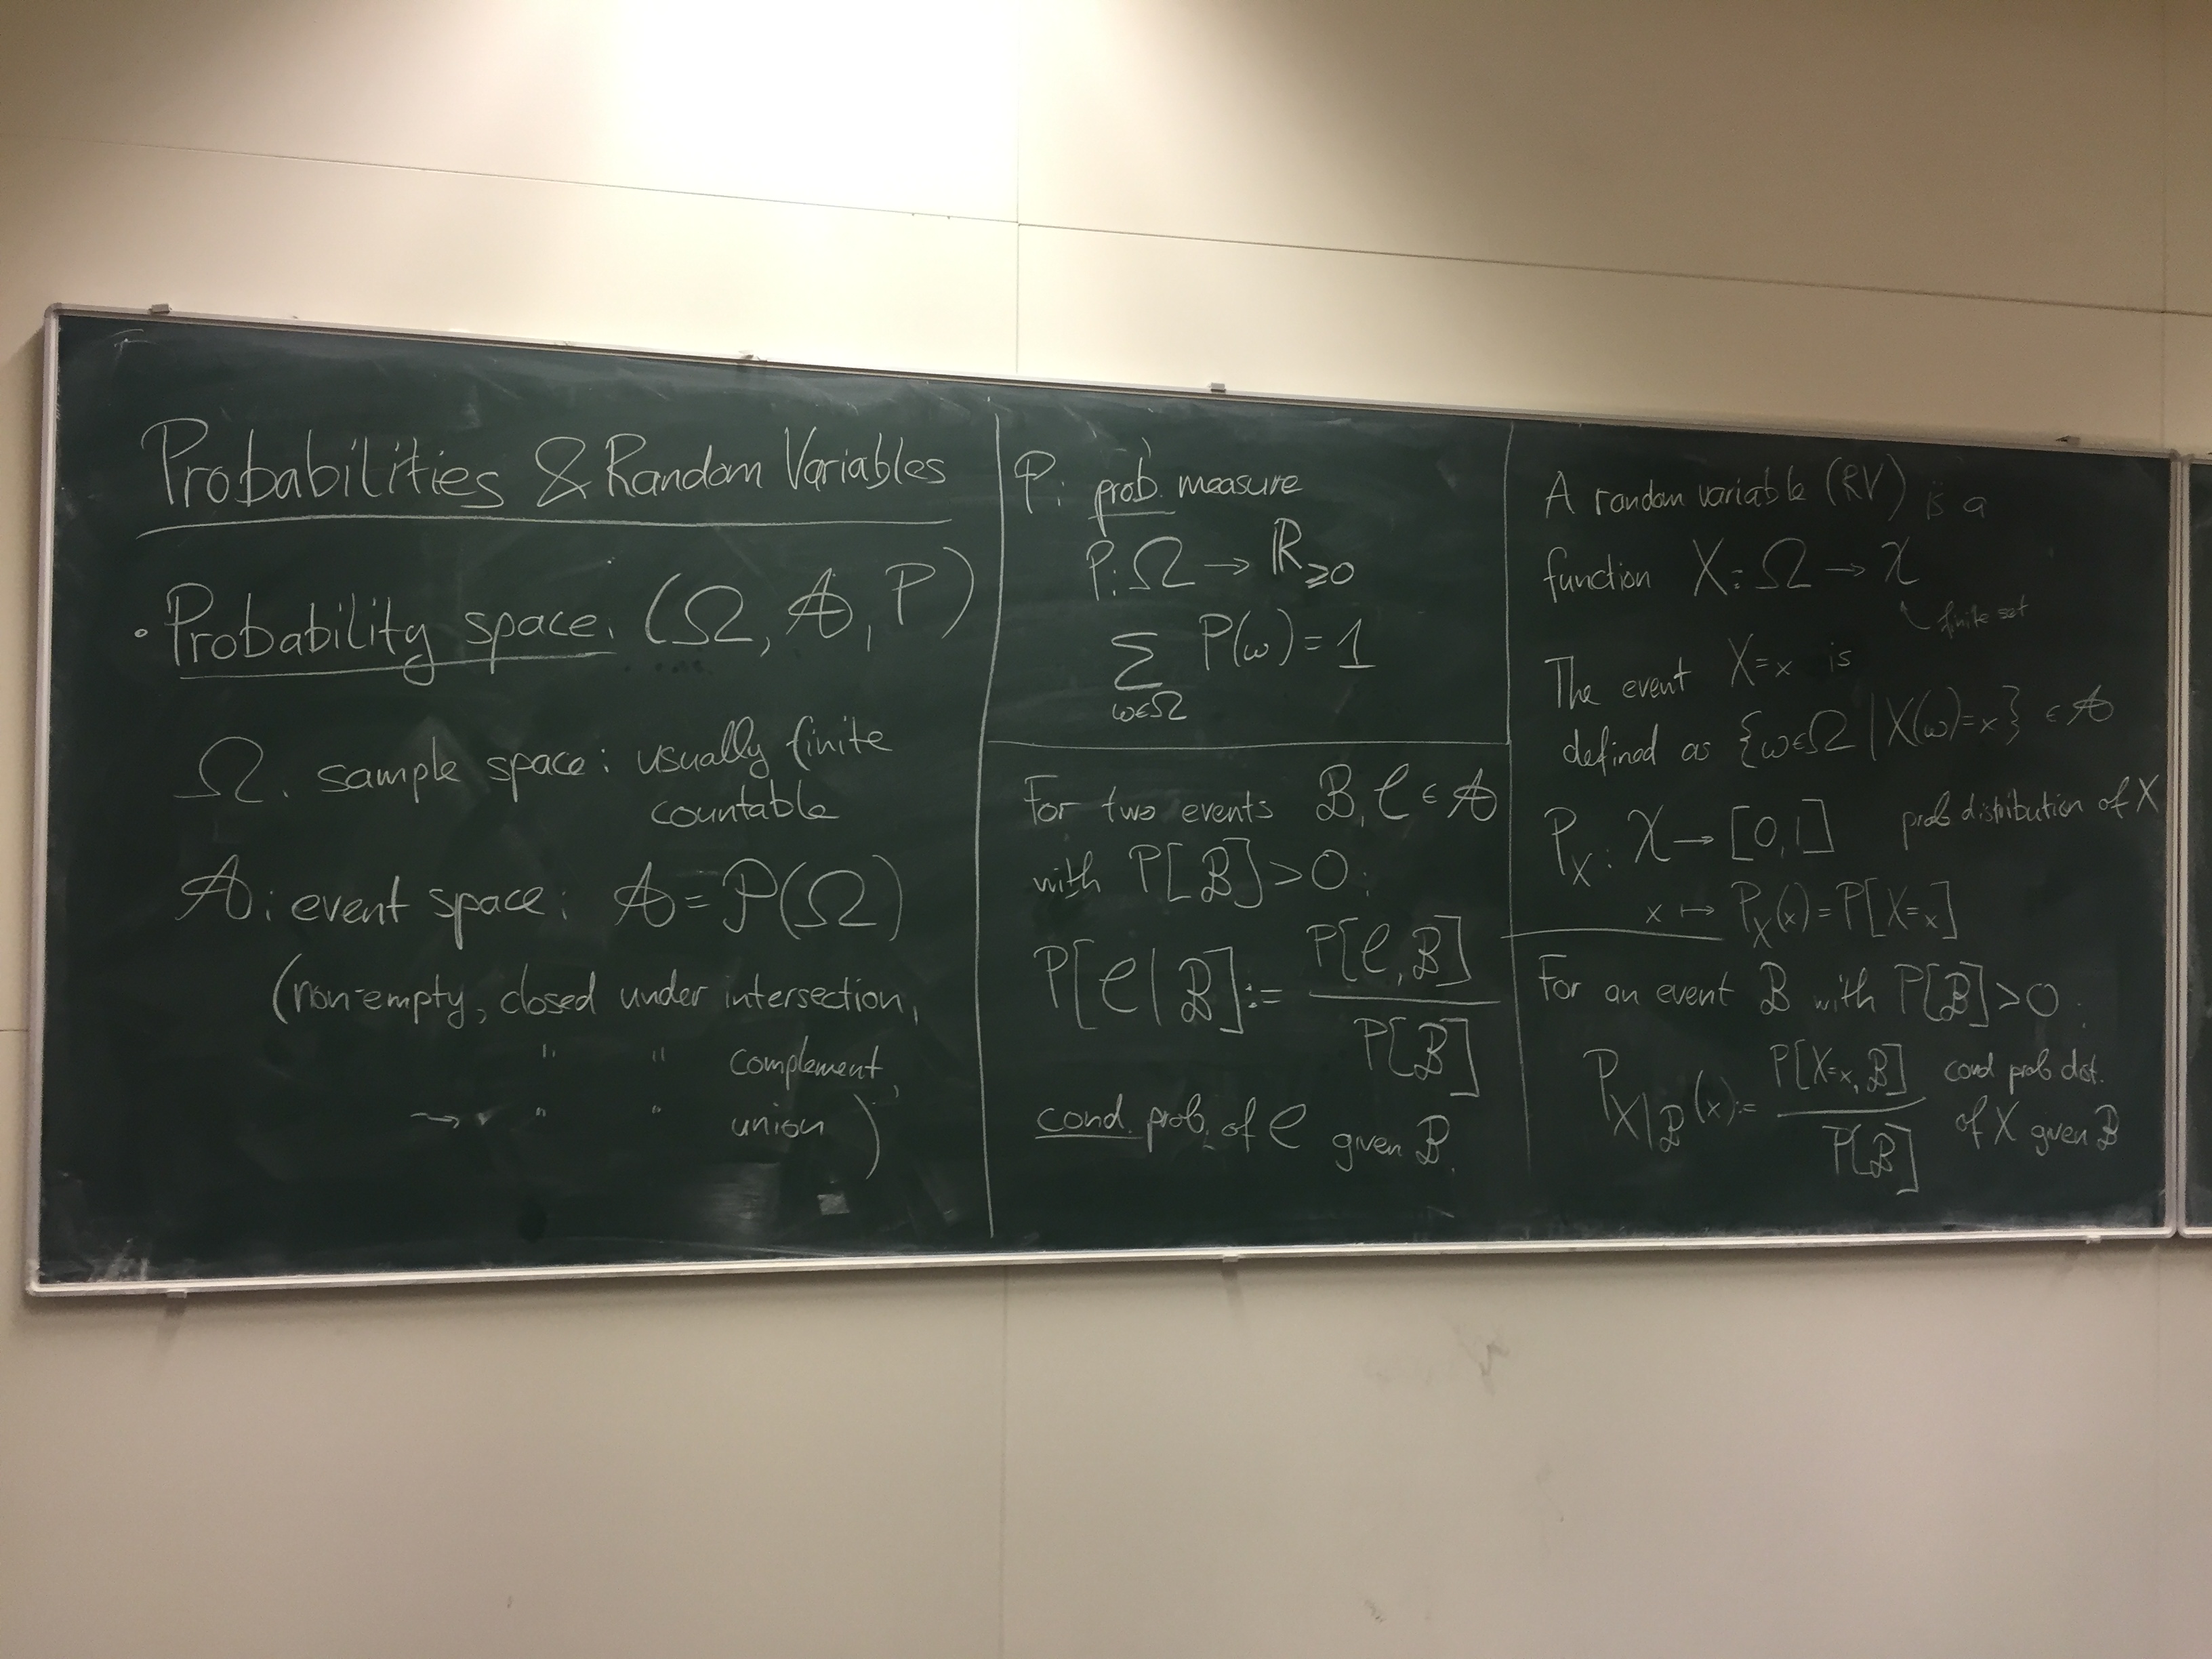 Probabilities & Random Variables
• Probability space: (Ω, 𝒜, P)
Ω: sample space: usually finite
countable
𝒜: event space: 𝒜 = 𝒫(Ω)
(non-empty, closed under intersection,
" " complement,
→ " " union)
P: prob. measure
P: Ω → ℝ≥0
∑ P(ω) = 1
ω∈Ω
For two events ℬ, 𝒞 ∈ 𝒜
with P[ℬ] > 0:
P[𝒞|ℬ] := P[𝒞,ℬ] / P[ℬ]
cond. prob. of 𝒞 given ℬ.
A random variable (RV) is a
function X: Ω → 𝒳
finite set
The event X=x is
defined as {ω∈Ω | X(ω)=x} ∈ 𝒜
P_X: 𝒳 → [0,1] prob distribution of X
x ↦ P_X(x) = P[X=x]
For an event ℬ with P[ℬ] > 0:
P_X|ℬ(x) := P[X=x, ℬ] / P[ℬ] cond prob dist.
of X given ℬ